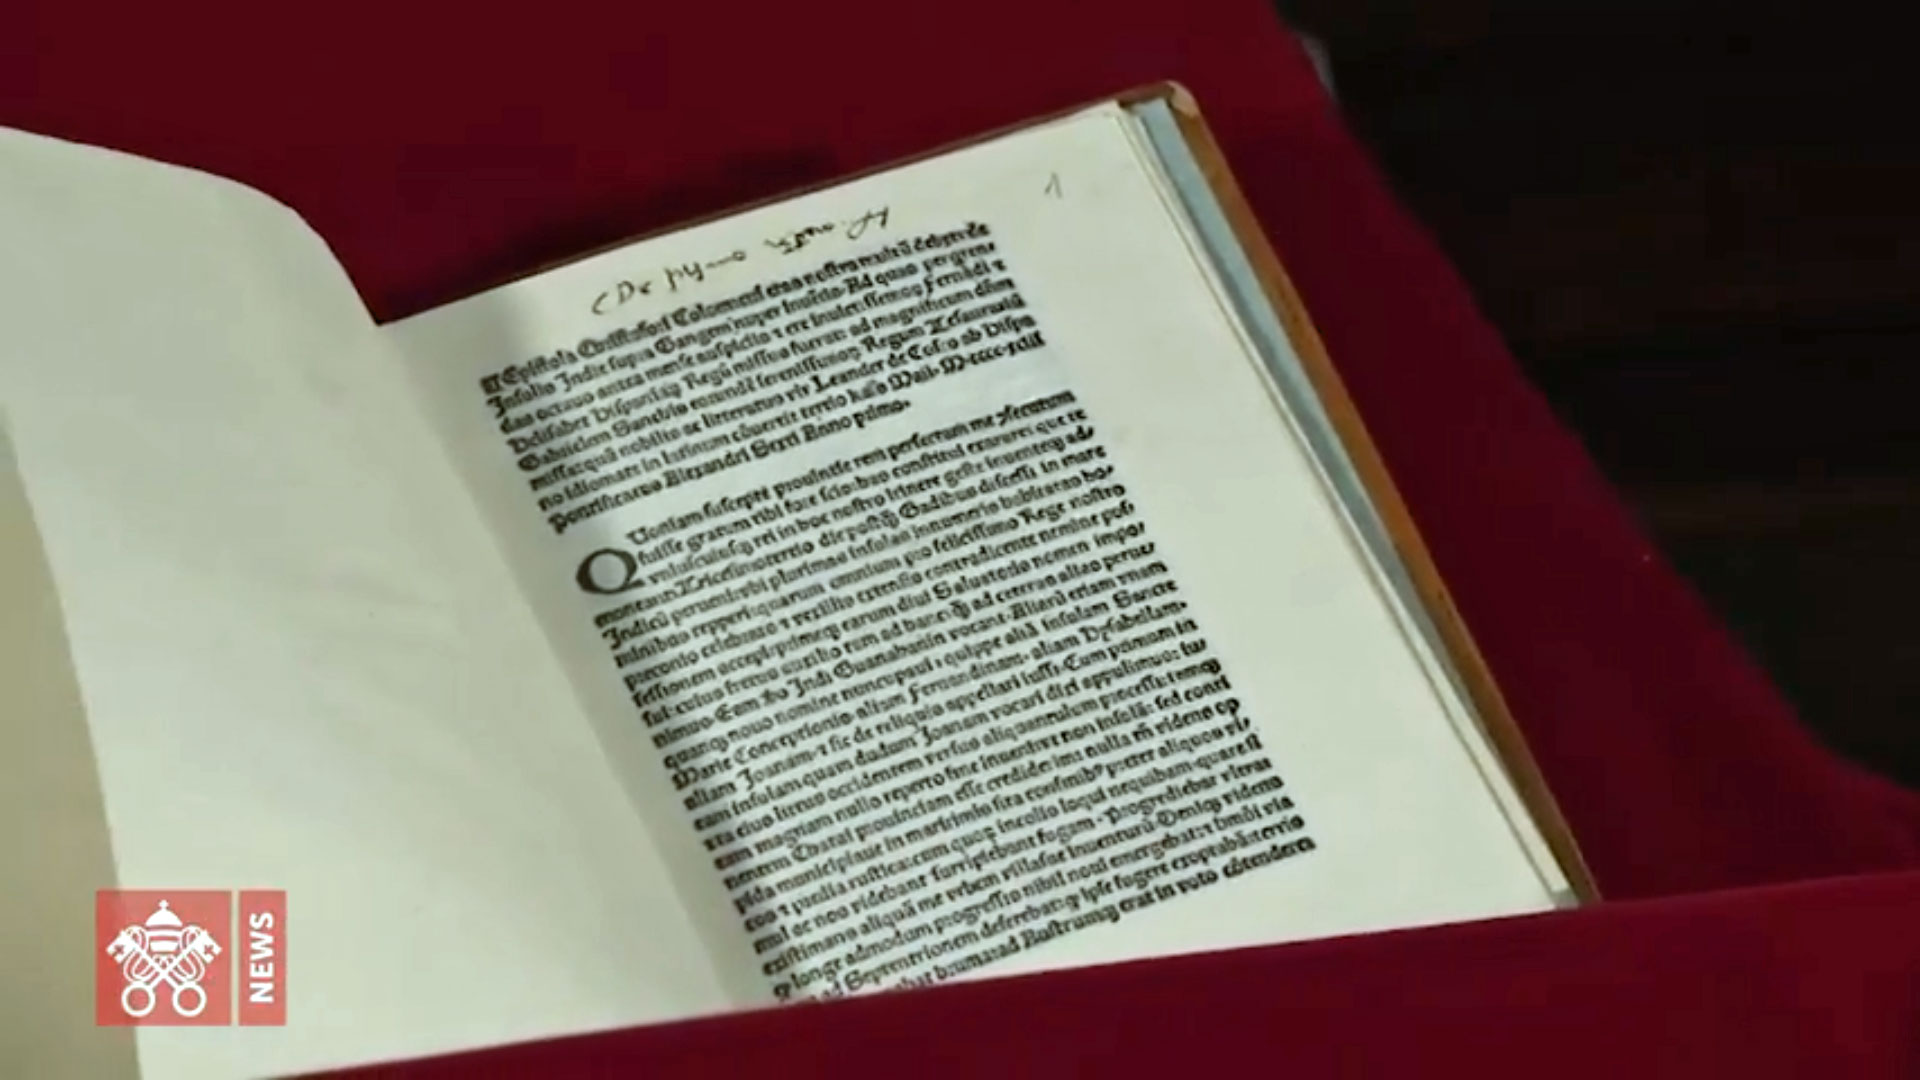 1
Epistola Christofori Colom: cui etas nostra multũ debet: de
Insulis Indie supra Gangem nuper inuẽtis. Ad quas perqren-
das octauo antea mense auspiciis ⁊ ere inuictissimoꝝ Fernãdi ⁊
Helisabet Hispaniaꝝ Regũ missus fuerat: ad magnificum dñm
Gabrielem Sanchis eorundẽ serenissimoꝝ Regum Tesaurariũ
missa: quã nobilis ac litteratus vir Leander de Cosco ab Hispa
no idiomate in latinum cõuertit tertio kal's Maii. M.cccc.xciii
Pontificatus Alexandri Sexti Anno primo.
Quoniam suscepte prouintie rem perfectam me ꝯsecutum
fuisse gratum tibi fore scio: has constitui exarare: que te
vniuscuiusqꝫ rei in hoc nostro itinere geste inuenteqꝫ ad-
moneant: Tricesimotertio die postqꝫ Gadibus discessi in mare
Indicũ perueni: vbi plurimas insulas innumeris habitatas ho-
minibus repperi: quarum omnium pro felicissimo Rege nostro
preconio celebrato ⁊ vexillis extensis contradicente nemine pos-
sessionem accepi: primeqꝫ earum diui Saluatoris nomen impo-
sui: cuius fretus auxilio tam ad hanc: qꝫ ad ceteras alias perue-
nimus. Eam ꝟo Indi Guanahanin vocant. Aliarũ etiam vnam
quanqꝫ nouo nomine nuncupaui: quippe aliã insulam Sancte
Marie Conceptionis. aliam Fernandinam. aliam Hysabellam.
aliam Joanam. ⁊ sic de reliquis appellari iussi. Cum primum in
eam insulam quam dudum Joanam vocari dixi appulimus: iu-
xta eius littus occidentem versus aliquantulum processi: tamqꝫ
eam magnam nullo reperto fine inueni: vt non insulã: sed conti
nentem Chatai prouinciam esse crediderim: nulla tñ videns op-
pida municipiaue in maritimis sita confinibꝰ preter aliquos vi-
cos ⁊ predia rustica: cum quoꝝ incolis loqui nequibam. quare si
mul ac nos videbant surripiebant fugam. Progrediebar vltra:
existimans aliquã me vrbem villasue inuenturũ. Deniqꝫ videns
qꝫ longe admodum progressis nihil noui emergebat: ⁊ hmõi via
ad Septentrionem deferebat: qꝫ ipse fugere exoptabã: terris
bruma: ad Austrumqꝫ erat in voto cõtendere
NEWS